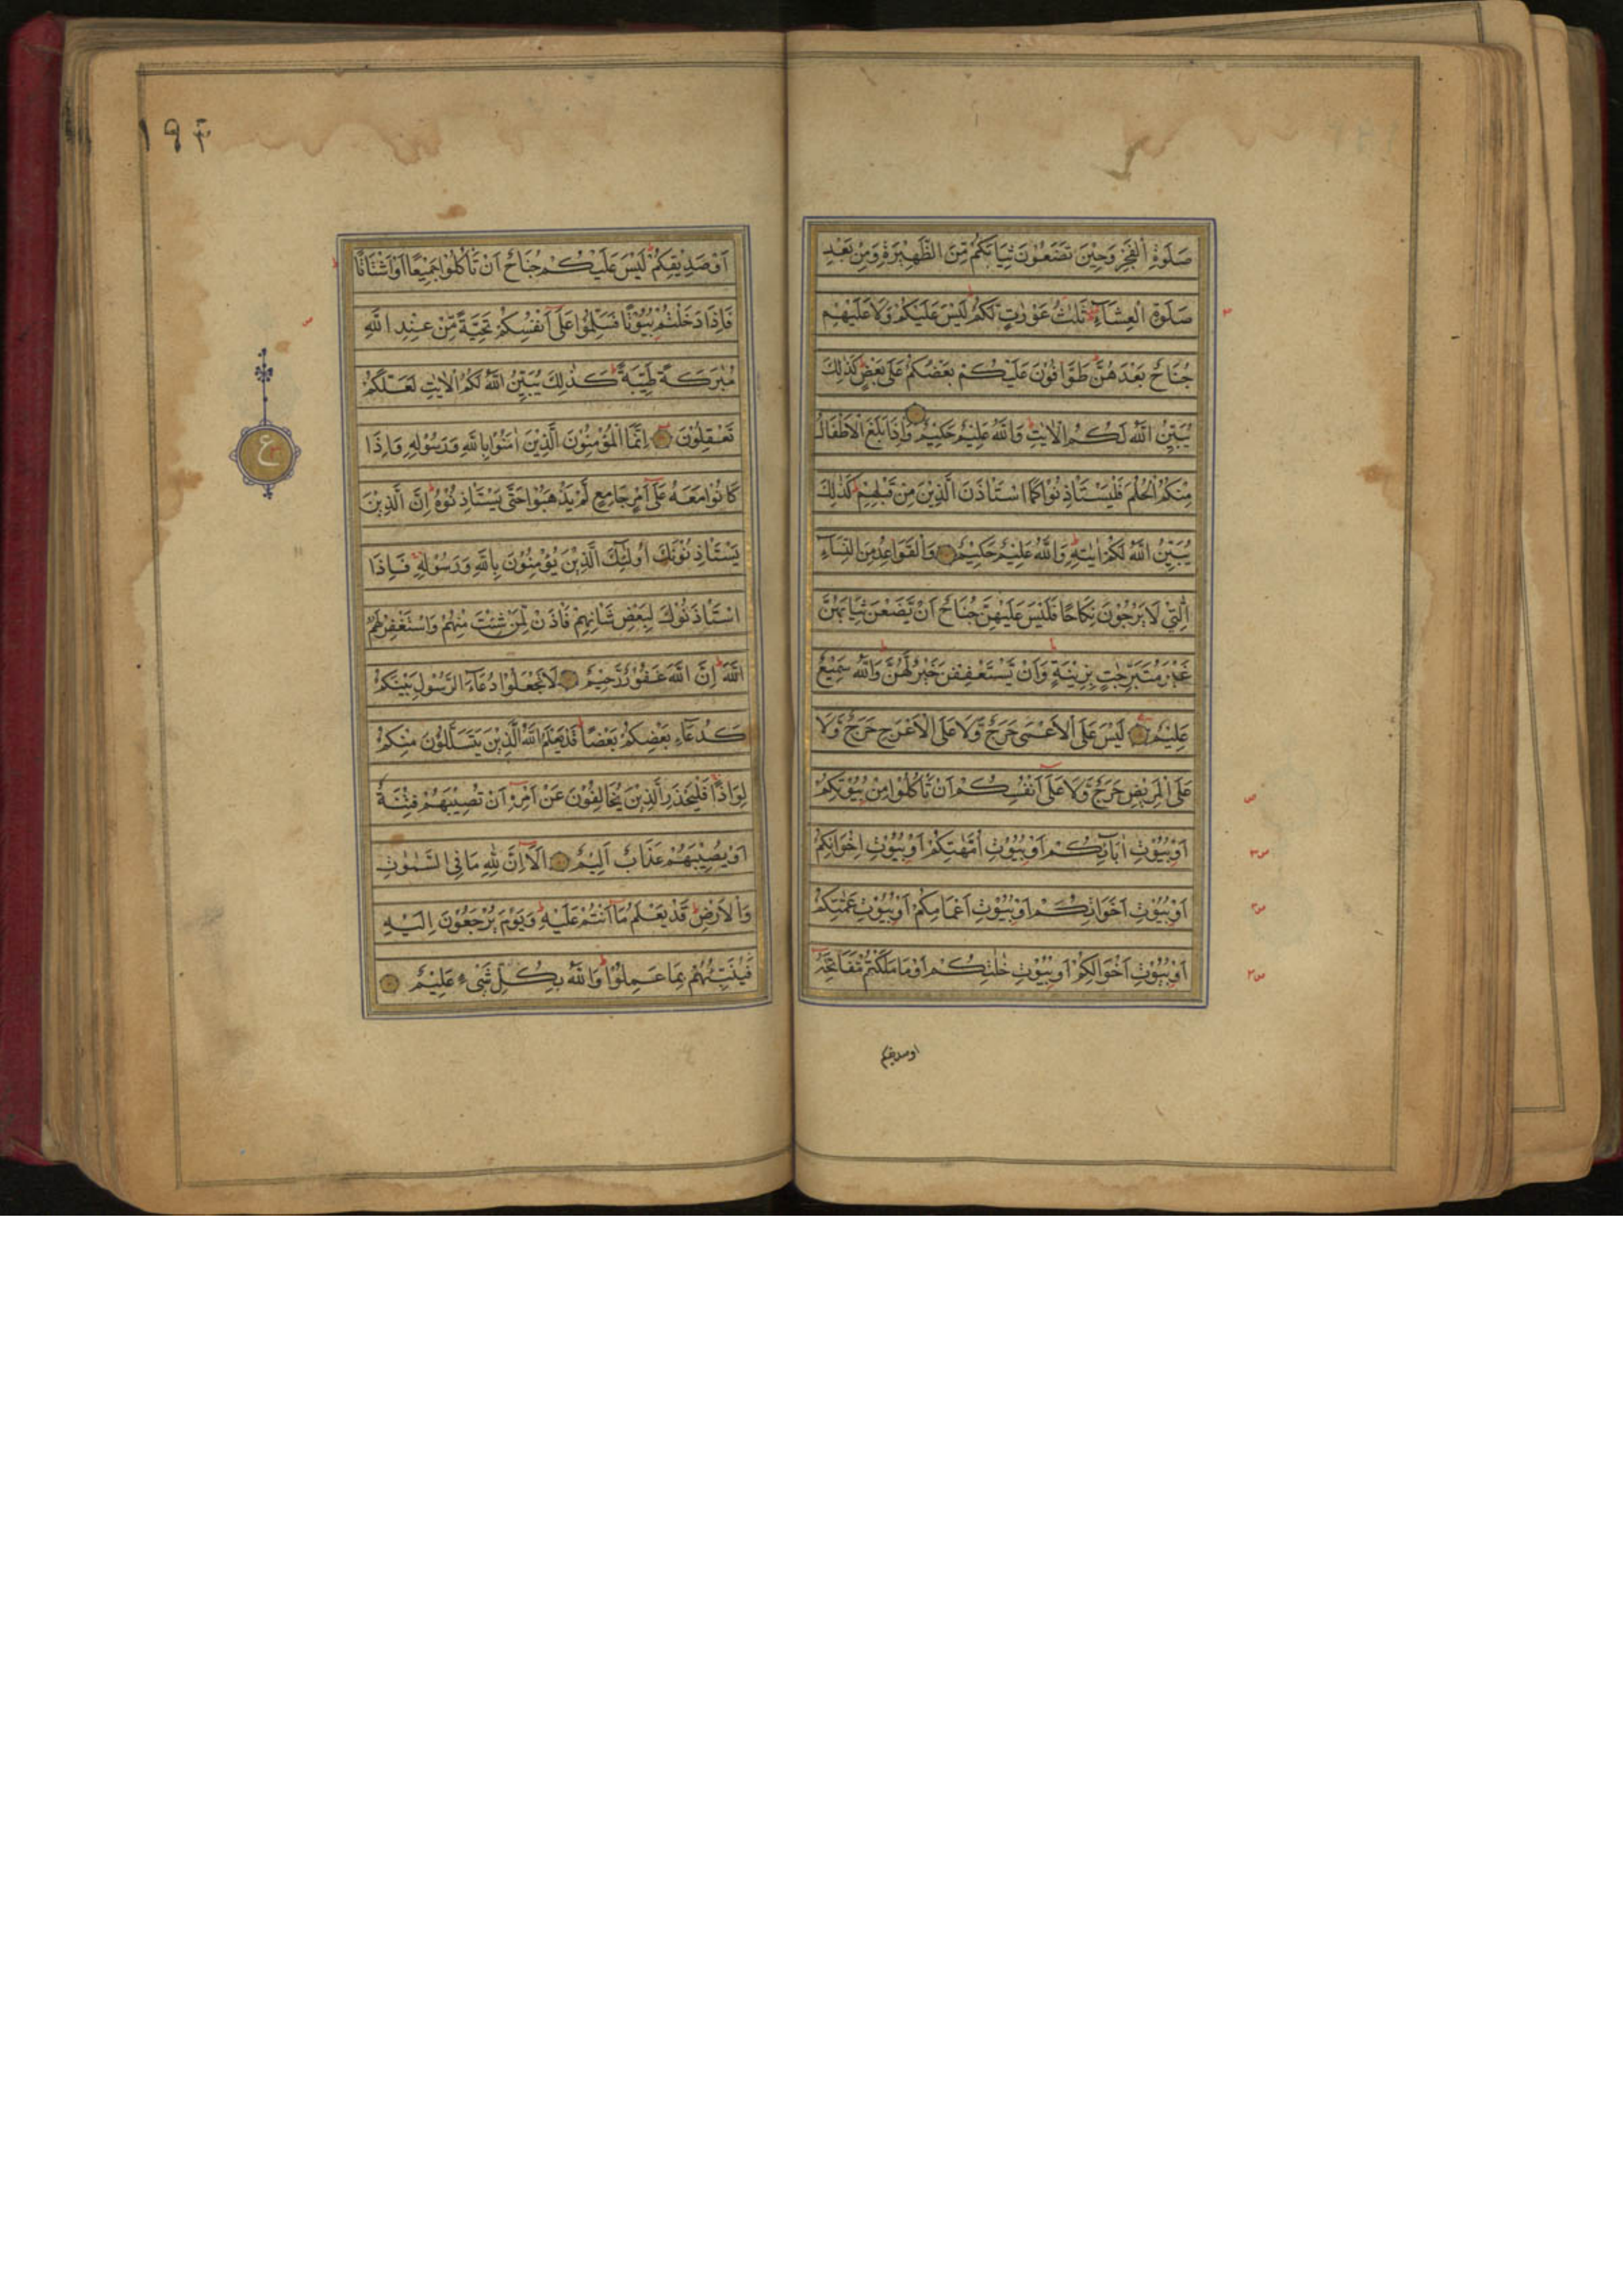 صَلٰوةِ الْفَجْرِ وَحِيْنَ تَضَعُوْنَ ثِيَابَكُمْ مِّنَ الظَّهِيْرَةِ وَمِنْ بَعْدِ
صَلٰوةِ الْعِشَآءِ ثَلٰثُ عَوْرٰتٍ لَّكُمْ لَيْسَ عَلَيْكُمْ وَلَا عَلَيْهِمْ
جُنَاحٌ بَعْدَهُنَّ طَوَّافُوْنَ عَلَيْكُمْ بَعْضُكُمْ عَلٰى بَعْضٍ كَذٰلِكَ
يُبَيِّنُ اللّٰهُ لَكُمُ الْاٰيٰتِ وَاللّٰهُ عَلِيْمٌ حَكِيْمٌ وَاِذَا بَلَغَ الْاَطْفَالُ
مِنْكُمُ الْحُلُمَ فَلْيَسْتَاْذِنُوْا كَمَا اسْتَاْذَنَ الَّذِيْنَ مِنْ قَبْلِهِمْ كَذٰلِكَ
يُبَيِّنُ اللّٰهُ لَكُمْ اٰيٰتِهٖ وَاللّٰهُ عَلِيْمٌ حَكِيْمٌ وَالْقَوَاعِدُ مِنَ النِّسَآءِ
الّٰتِيْ لَا يَرْجُوْنَ نِكَاحًا فَلَيْسَ عَلَيْهِنَّ جُنَاحٌ اَنْ يَّضَعْنَ ثِيَابَهُنَّ
غَيْرَ مُتَبَرِّجٰتٍ بِزِيْنَةٍ وَاَنْ يَّسْتَعْفِفْنَ خَيْرٌ لَّهُنَّ وَاللّٰهُ سَمِيْعٌ
عَلِيْمٌ لَيْسَ عَلَى الْاَعْمٰى حَرَجٌ وَّلَا عَلَى الْاَعْرَجِ حَرَجٌ وَّلَا
عَلَى الْمَرِيْضِ حَرَجٌ وَّلَا عَلٰٓى اَنْفُسِكُمْ اَنْ تَاْكُلُوْا مِنْ بُيُوْتِكُمْ
اَوْ بُيُوْتِ اٰبَآئِكُمْ اَوْ بُيُوْتِ اُمَّهٰتِكُمْ اَوْ بُيُوْتِ اِخْوَانِكُمْ
اَوْ بُيُوْتِ اَخَوٰتِكُمْ اَوْ بُيُوْتِ اَعْمَامِكُمْ اَوْ بُيُوْتِ عَمّٰتِكُمْ
اَوْ بُيُوْتِ اَخْوَالِكُمْ اَوْ بُيُوْتِ خٰلٰتِكُمْ اَوْ مَا مَلَكْتُمْ مَّفَاتِحَهٗٓ
اوصديقكم
١٩٣
اَوْ صَدِيْقِكُمْ لَيْسَ عَلَيْكُمْ جُنَاحٌ اَنْ تَاْكُلُوْا جَمِيْعًا اَوْ اَشْتَاتًا
فَاِذَا دَخَلْتُمْ بُيُوْتًا فَسَلِّمُوْا عَلٰٓى اَنْفُسِكُمْ تَحِيَّةً مِّنْ عِنْدِ اللّٰهِ
مُبٰرَكَةً طَيِّبَةً كَذٰلِكَ يُبَيِّنُ اللّٰهُ لَكُمُ الْاٰيٰتِ لَعَلَّكُمْ
تَعْقِلُوْنَ اِنَّمَا الْمُؤْمِنُوْنَ الَّذِيْنَ اٰمَنُوْا بِاللّٰهِ وَرَسُوْلِهٖ وَاِذَا
كَانُوْا مَعَهٗ عَلٰٓى اَمْرٍ جَامِعٍ لَّمْ يَذْهَبُوْا حَتّٰى يَسْتَاْذِنُوْهُ اِنَّ الَّذِيْنَ
يَسْتَاْذِنُوْنَكَ اُولٰٓئِكَ الَّذِيْنَ يُؤْمِنُوْنَ بِاللّٰهِ وَرَسُوْلِهٖ فَاِذَا
اسْتَاْذَنُوْكَ لِبَعْضِ شَاْنِهِمْ فَاْذَنْ لِّمَنْ شِئْتَ مِنْهُمْ وَاسْتَغْفِرْ لَهُمُ
اللّٰهَ اِنَّ اللّٰهَ غَفُوْرٌ رَّحِيْمٌ لَا تَجْعَلُوْا دُعَآءَ الرَّسُوْلِ بَيْنَكُمْ
كَدُعَآءِ بَعْضِكُمْ بَعْضًا قَدْ يَعْلَمُ اللّٰهُ الَّذِيْنَ يَتَسَلَّلُوْنَ مِنْكُمْ
لِوَاذًا فَلْيَحْذَرِ الَّذِيْنَ يُخَالِفُوْنَ عَنْ اَمْرِهٖٓ اَنْ تُصِيْبَهُمْ فِتْنَةٌ
اَوْ يُصِيْبَهُمْ عَذَابٌ اَلِيْمٌ اَلَآ اِنَّ لِلّٰهِ مَا فِي السَّمٰوٰتِ
وَالْاَرْضِ قَدْ يَعْلَمُ مَآ اَنْتُمْ عَلَيْهِ وَيَوْمَ يُرْجَعُوْنَ اِلَيْهِ
فَيُنَبِّئُهُمْ بِمَا عَمِلُوْا وَاللّٰهُ بِكُلِّ شَيْءٍ عَلِيْمٌ
ع